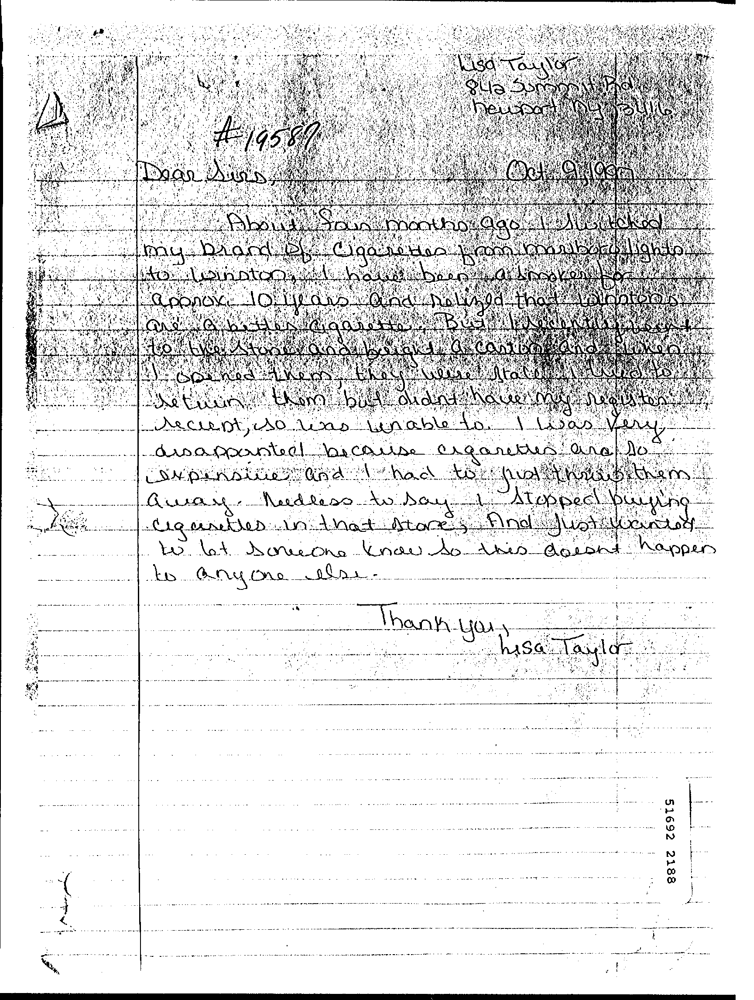 Lisa Taylor
Summit Rd
Newport NY 13416
#19587
Dear Sirs, Oct. 9, 1997
About four months ago I switched
my brand of Cigarettes from marlboro lights
to winston, I have been a smoker for
approx. 10 years and relized that winstons
are a better cigarette. But I recently went
to the store and bought a carton and when
I opened them, they were stale. I tried to
return them but didnt have my register
reciept, so was unable to. I was very
disappointed because cigarettes are so
expensive and I had to just throw them
away. Needless to say I stopped buying
cigarettes in that store, And Just wanted
to let someone know so this doesnt happen
to anyone else.
Thank you,
Lisa Taylor
51692 2188